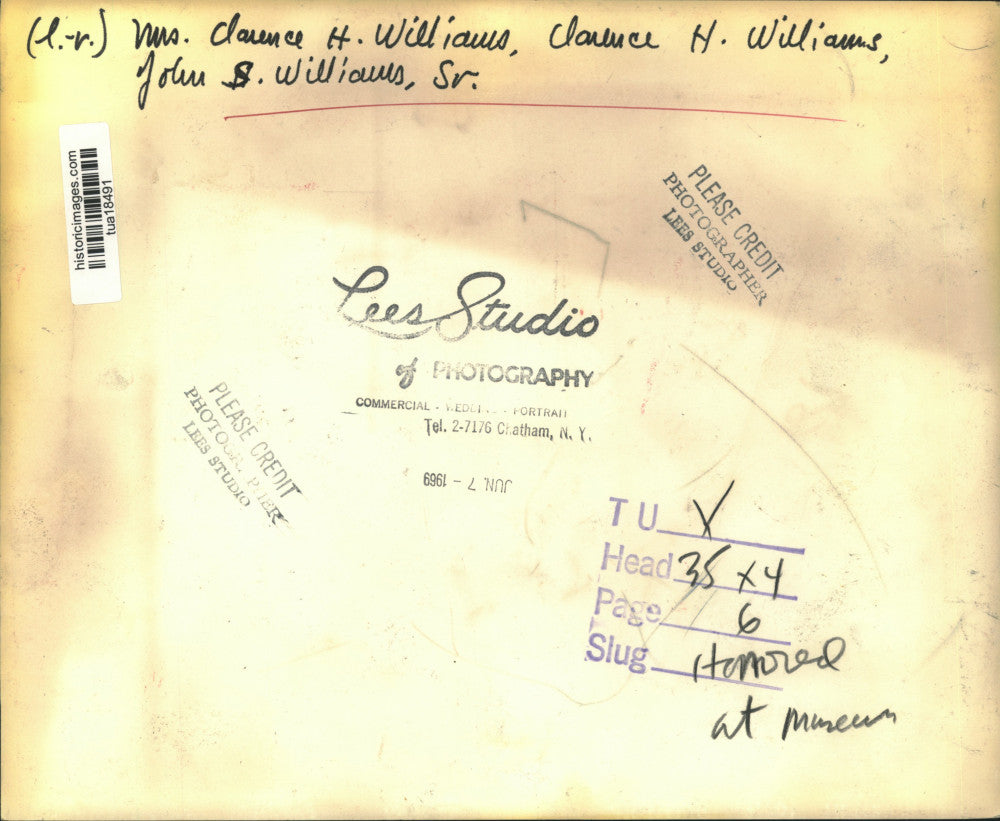 (l.-r.) Mrs. Clarence H. Williams, Clarence H. Williams,
John S. Williams, Sr.
historicimages.com
tua18491
PLEASE CREDIT
PHOTOGRAPHER
LEES STUDIO
Lees Studio
of PHOTOGRAPHY
COMMERCIAL - WEDDING - PORTRAIT
Tel. 2-7176 Chatham, N. Y.
PLEASE CREDIT
PHOTOGRAPHER
LEES STUDIO
JUN. 7 - 1969
TU
Head 35 x 4
Page 6
Slug Honored
at Museum